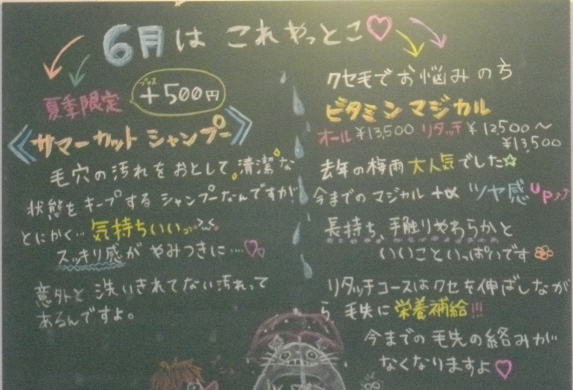 6月は これやっとこ♡
夏季限定
プラス
+500円
《サマーカット シャンプー》
毛穴の汚れをおとして、清潔な
状態をキープする シャンプーなんですが
とにかく… 気持ちいいっ
スッキリ感が やみつきに…♡
意外と 洗いきれてない汚れって
あるんですよ。
クセ毛でお悩みの方
ビタミン マジカル
オール ¥13,500 リタッチ ¥12,500〜
¥13,500
去年の梅雨 大人気でした☆
今までのマジカル +α ツヤ感up♪♪
長持ち、手触りやわらかと
いいこといっぱいです
リタッチコースはクセを伸ばしなが
ら 毛先に栄養補給!!!
今までの毛先の絡みが
なくなりますよ♡